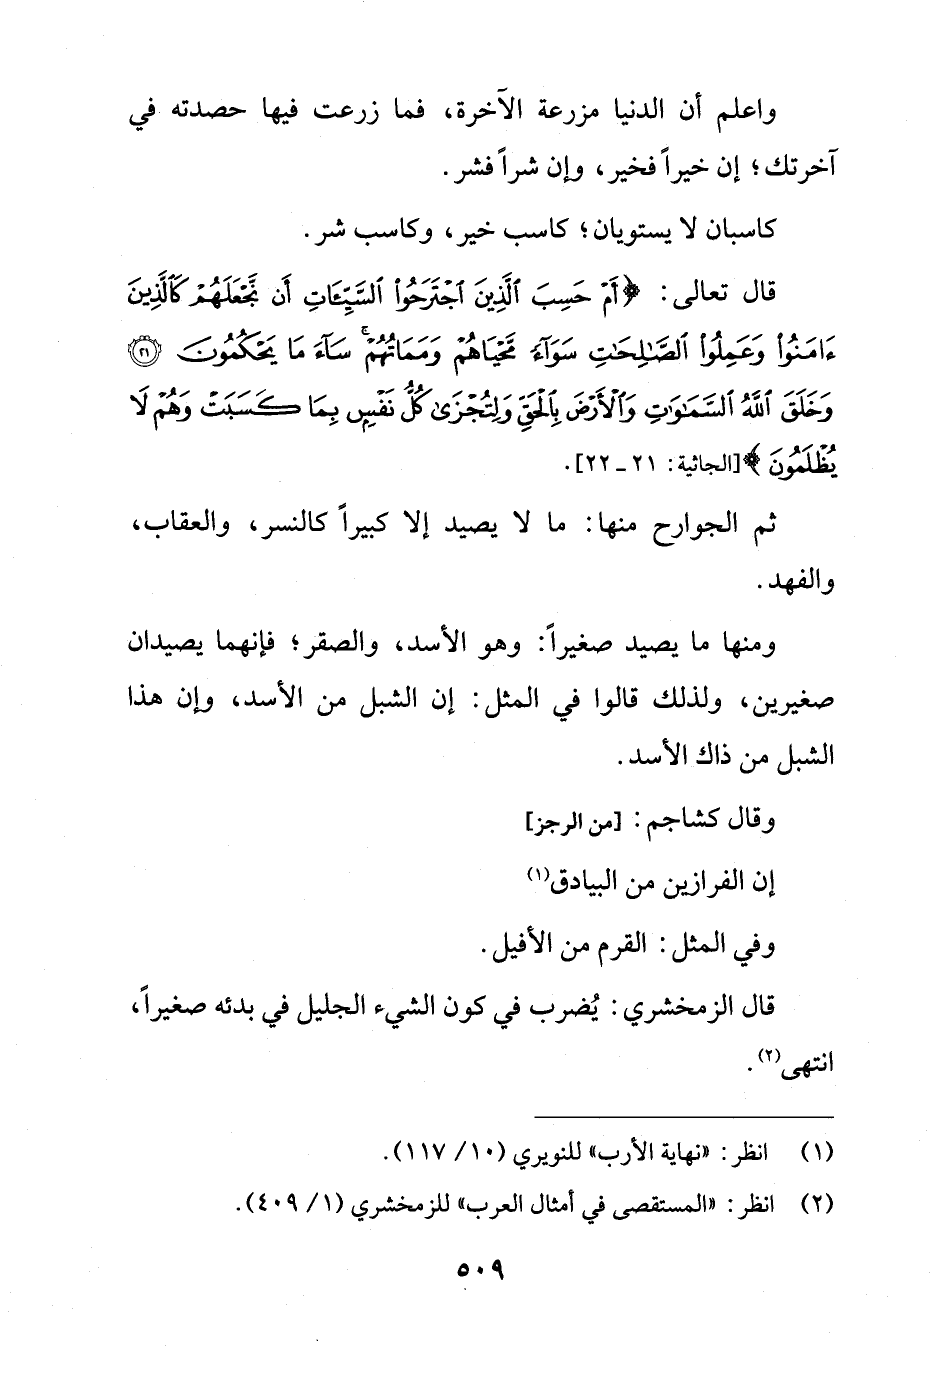 واعلم أن الدنيا مزرعة الآخرة، فما زرعت فيها حصدته في
آخرتك؛ إن خيراً فخير، وإن شراً فشر.
كاسبان لا يستويان؛ كاسب خير، وكاسب شر.
قال تعالى: ﴿أَمْ حَسِبَ ٱلَّذِينَ ٱجْتَرَحُوا۟ ٱلسَّيِّـَٔاتِ أَن نَّجْعَلَهُمْ كَٱلَّذِينَ
ءَامَنُوا۟ وَعَمِلُوا۟ ٱلصَّـٰلِحَـٰتِ سَوَآءً مَّحْيَاهُمْ وَمَمَاتُهُمْ ۚ سَآءَ مَا يَحْكُمُونَ ۝٢١
وَخَلَقَ ٱللَّهُ ٱلسَّمَـٰوَٰتِ وَٱلْأَرْضَ بِٱلْحَقِّ وَلِتُجْزَىٰ كُلُّ نَفْسٍۭ بِمَا كَسَبَتْ وَهُمْ لَا
يُظْلَمُونَ﴾ [الجاثية: ٢١ ـ ٢٢].
ثم الجوارح منها: ما لا يصيد إلا كبيراً كالنسر، والعقاب،
والفهد.
ومنها ما يصيد صغيراً: وهو الأسد، والصقر؛ فإنهما يصيدان
صغيرين، ولذلك قالوا في المثل: إن الشبل من الأسد، وإن هذا
الشبل من ذاك الأسد.
وقال كشاجم: [من الرجز]
إن الفرازين من البيادق(١)
وفي المثل: القرم من الأفيل.
قال الزمخشري: يُضرب في كون الشيء الجليل في بدئه صغيراً،
انتهى(٢).
(١) انظر: «نهاية الأرب» للنويري (١٠/ ١١٧).
(٢) انظر: «المستقصى في أمثال العرب» للزمخشري (١/ ٤٠٩).
٥٠٩